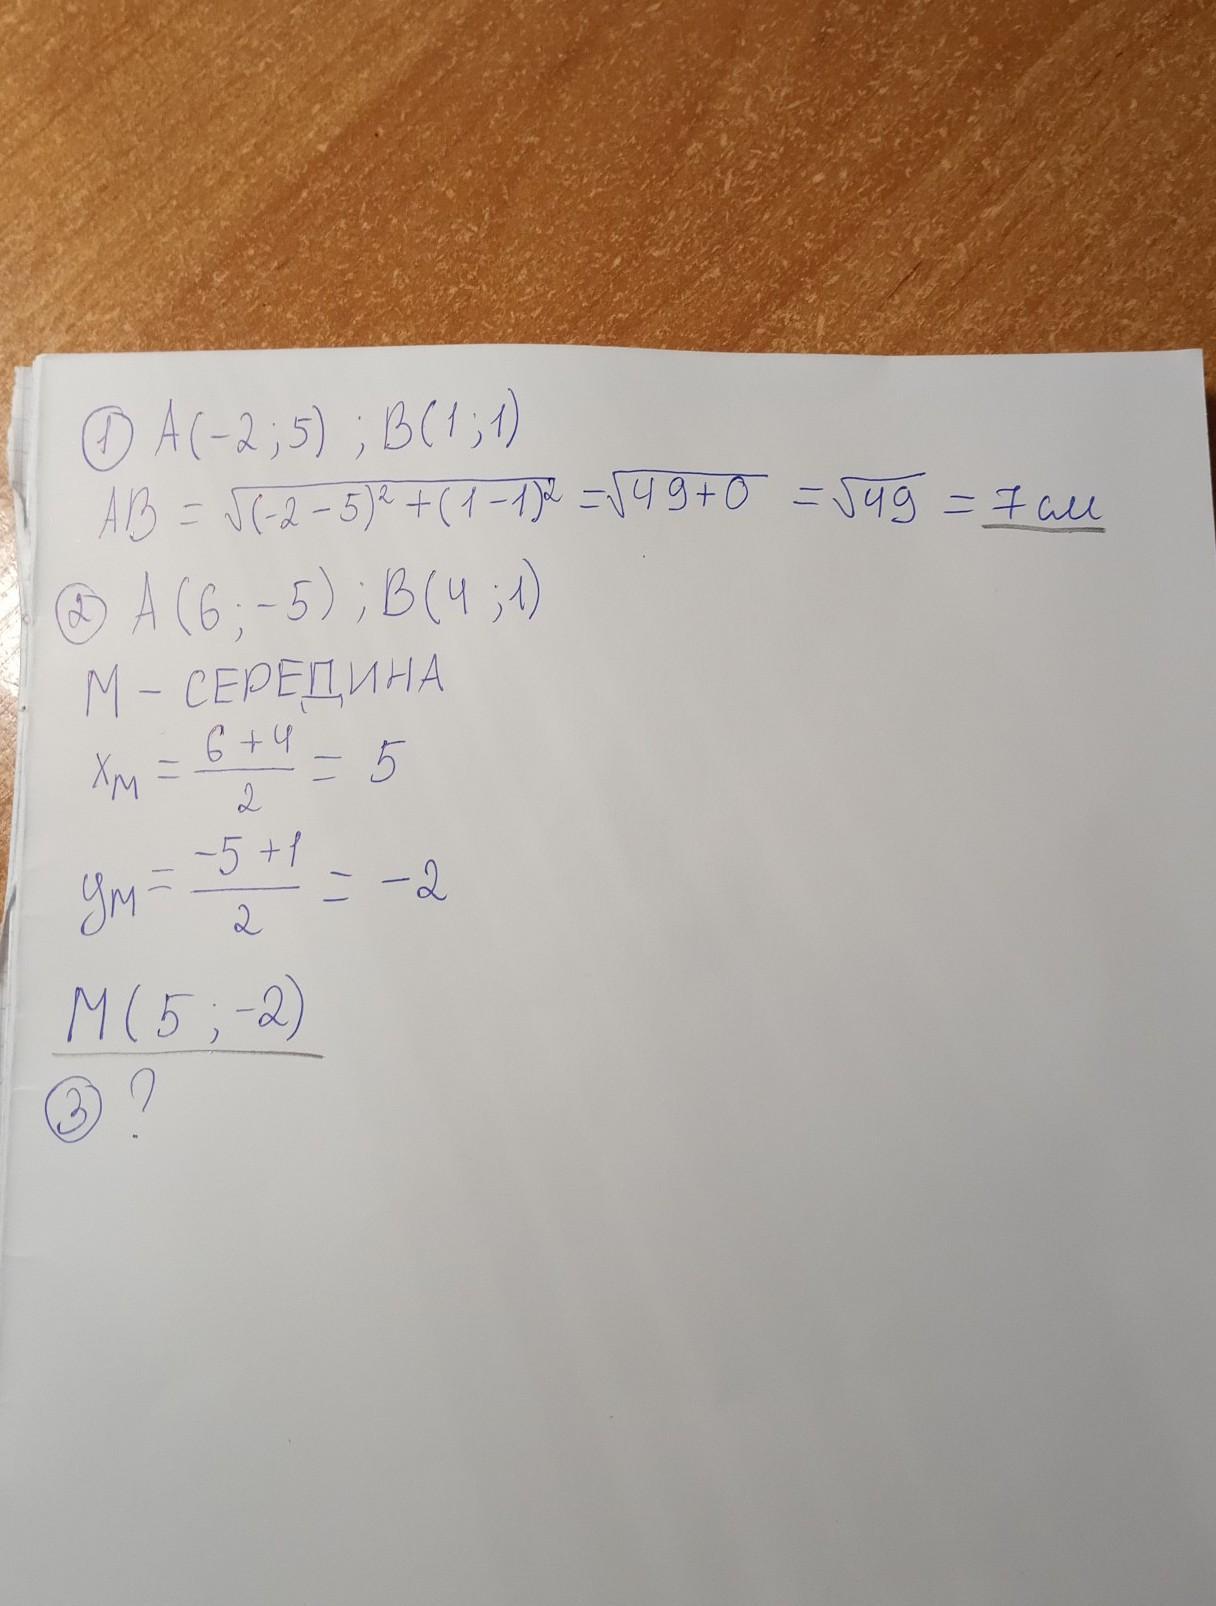 ① A(-2;5) ; B(1;1)
AB = √(-2-5)²+(1-1)² = √49+0 = √49 = 7 см
② A(6;-5) ; B(4;1)
M - СЕРЕДИНА
x_M = (6+4)/2 = 5
y_M = (-5+1)/2 = -2
M(5;-2)
③ ?